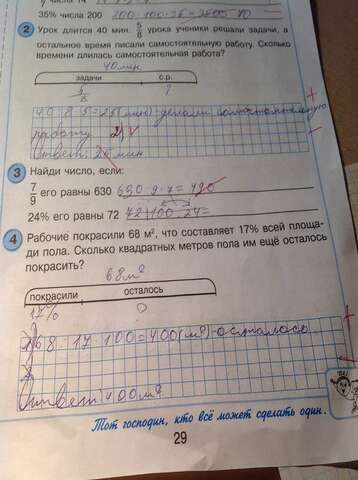 35% числа 200 200:100·35=
2 Урок длится 40 мин. 5/8 урока ученики решали задачи, а
остальное время писали самостоятельную работу. Сколько
времени длилась самостоятельная работа?
40 мин.
задачи с.р.
5/8 ?
40:8·5=25(мин)-делали самостоятельную
работу
Ответ: 25 мин
3 Найди число, если:
7/9 его равны 630 630·9:7=
24% его равны 72 72·100:24=
4 Рабочие покрасили 68 м², что составляет 17% всей площа-
ди пола. Сколько квадратных метров пола им ещё осталось
покрасить?
68м²
покрасили осталось
17% ?
68:17·100=400(м²)-осталось
Ответ: 400м²
Тот господин, кто всё может сделать один.
29